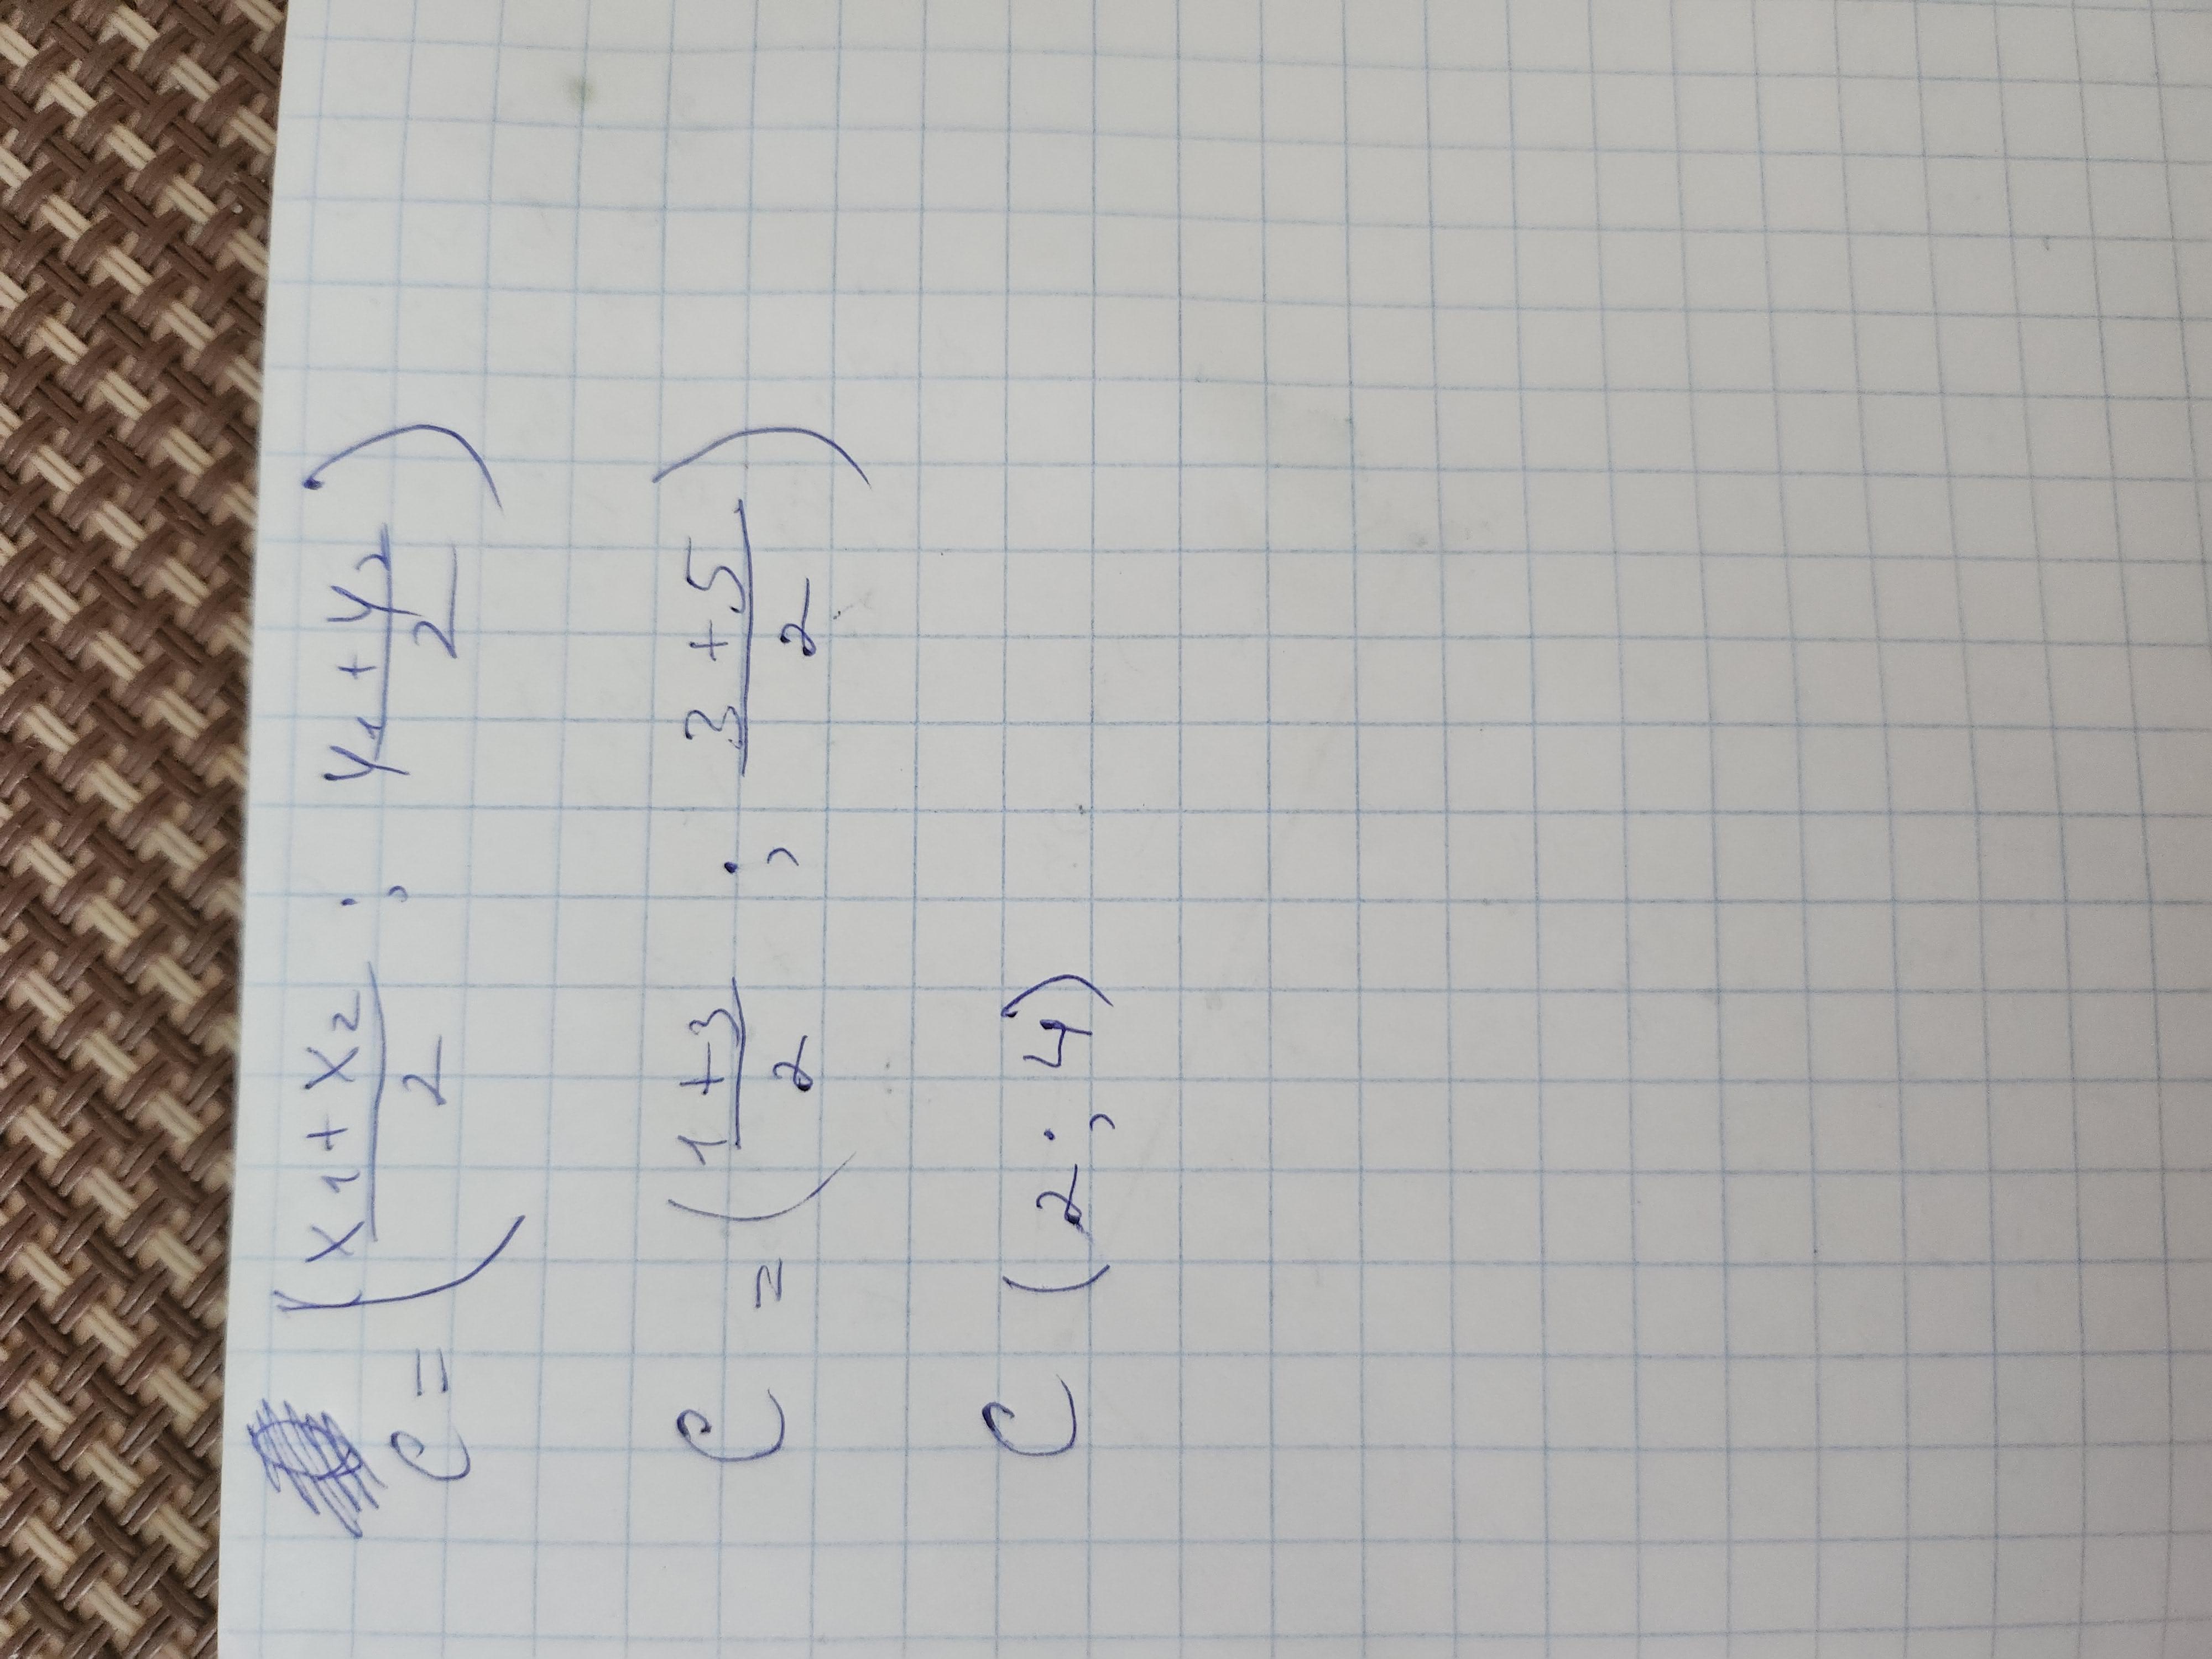 C = (x₁ + x₂ / 2 ; y₁ + y₂ / 2)
C = (1 + 3 / 2 ; 3 + 5 / 2)
C (2 ; 4)